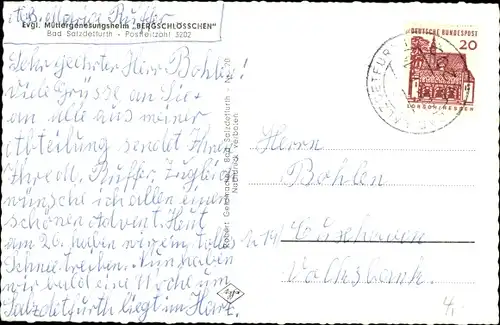 Abs. Monica Buffer
Evgl. Müttergenesungsheim „BERGSCHLÖSSCHEN"
Bad Salzdetfurth - Postleitzahl 3202
Sehr geehrter Herr Bohlen!
Viele Grüsse an Sie +
an alle aus meiner
Abteilung sendet Ihnen
Ihre M. Buffer. Zugleich
wünsche ich allen einen
schönen Advent. Heut
am 26. haben wir ein tolles
Schneetreiben. Nun haben
wir bald eine Woche um
Salzdetfurth liegt im Harz.
Robert Gerstmacher, Bad Salzdetfurth - Nr. 28
Nachdruck verboten
DEUTSCHE BUNDESPOST
20
LORSCH/HESSEN
Herrn
Bohlen
Cuxhaven
Volksbank.
4,-